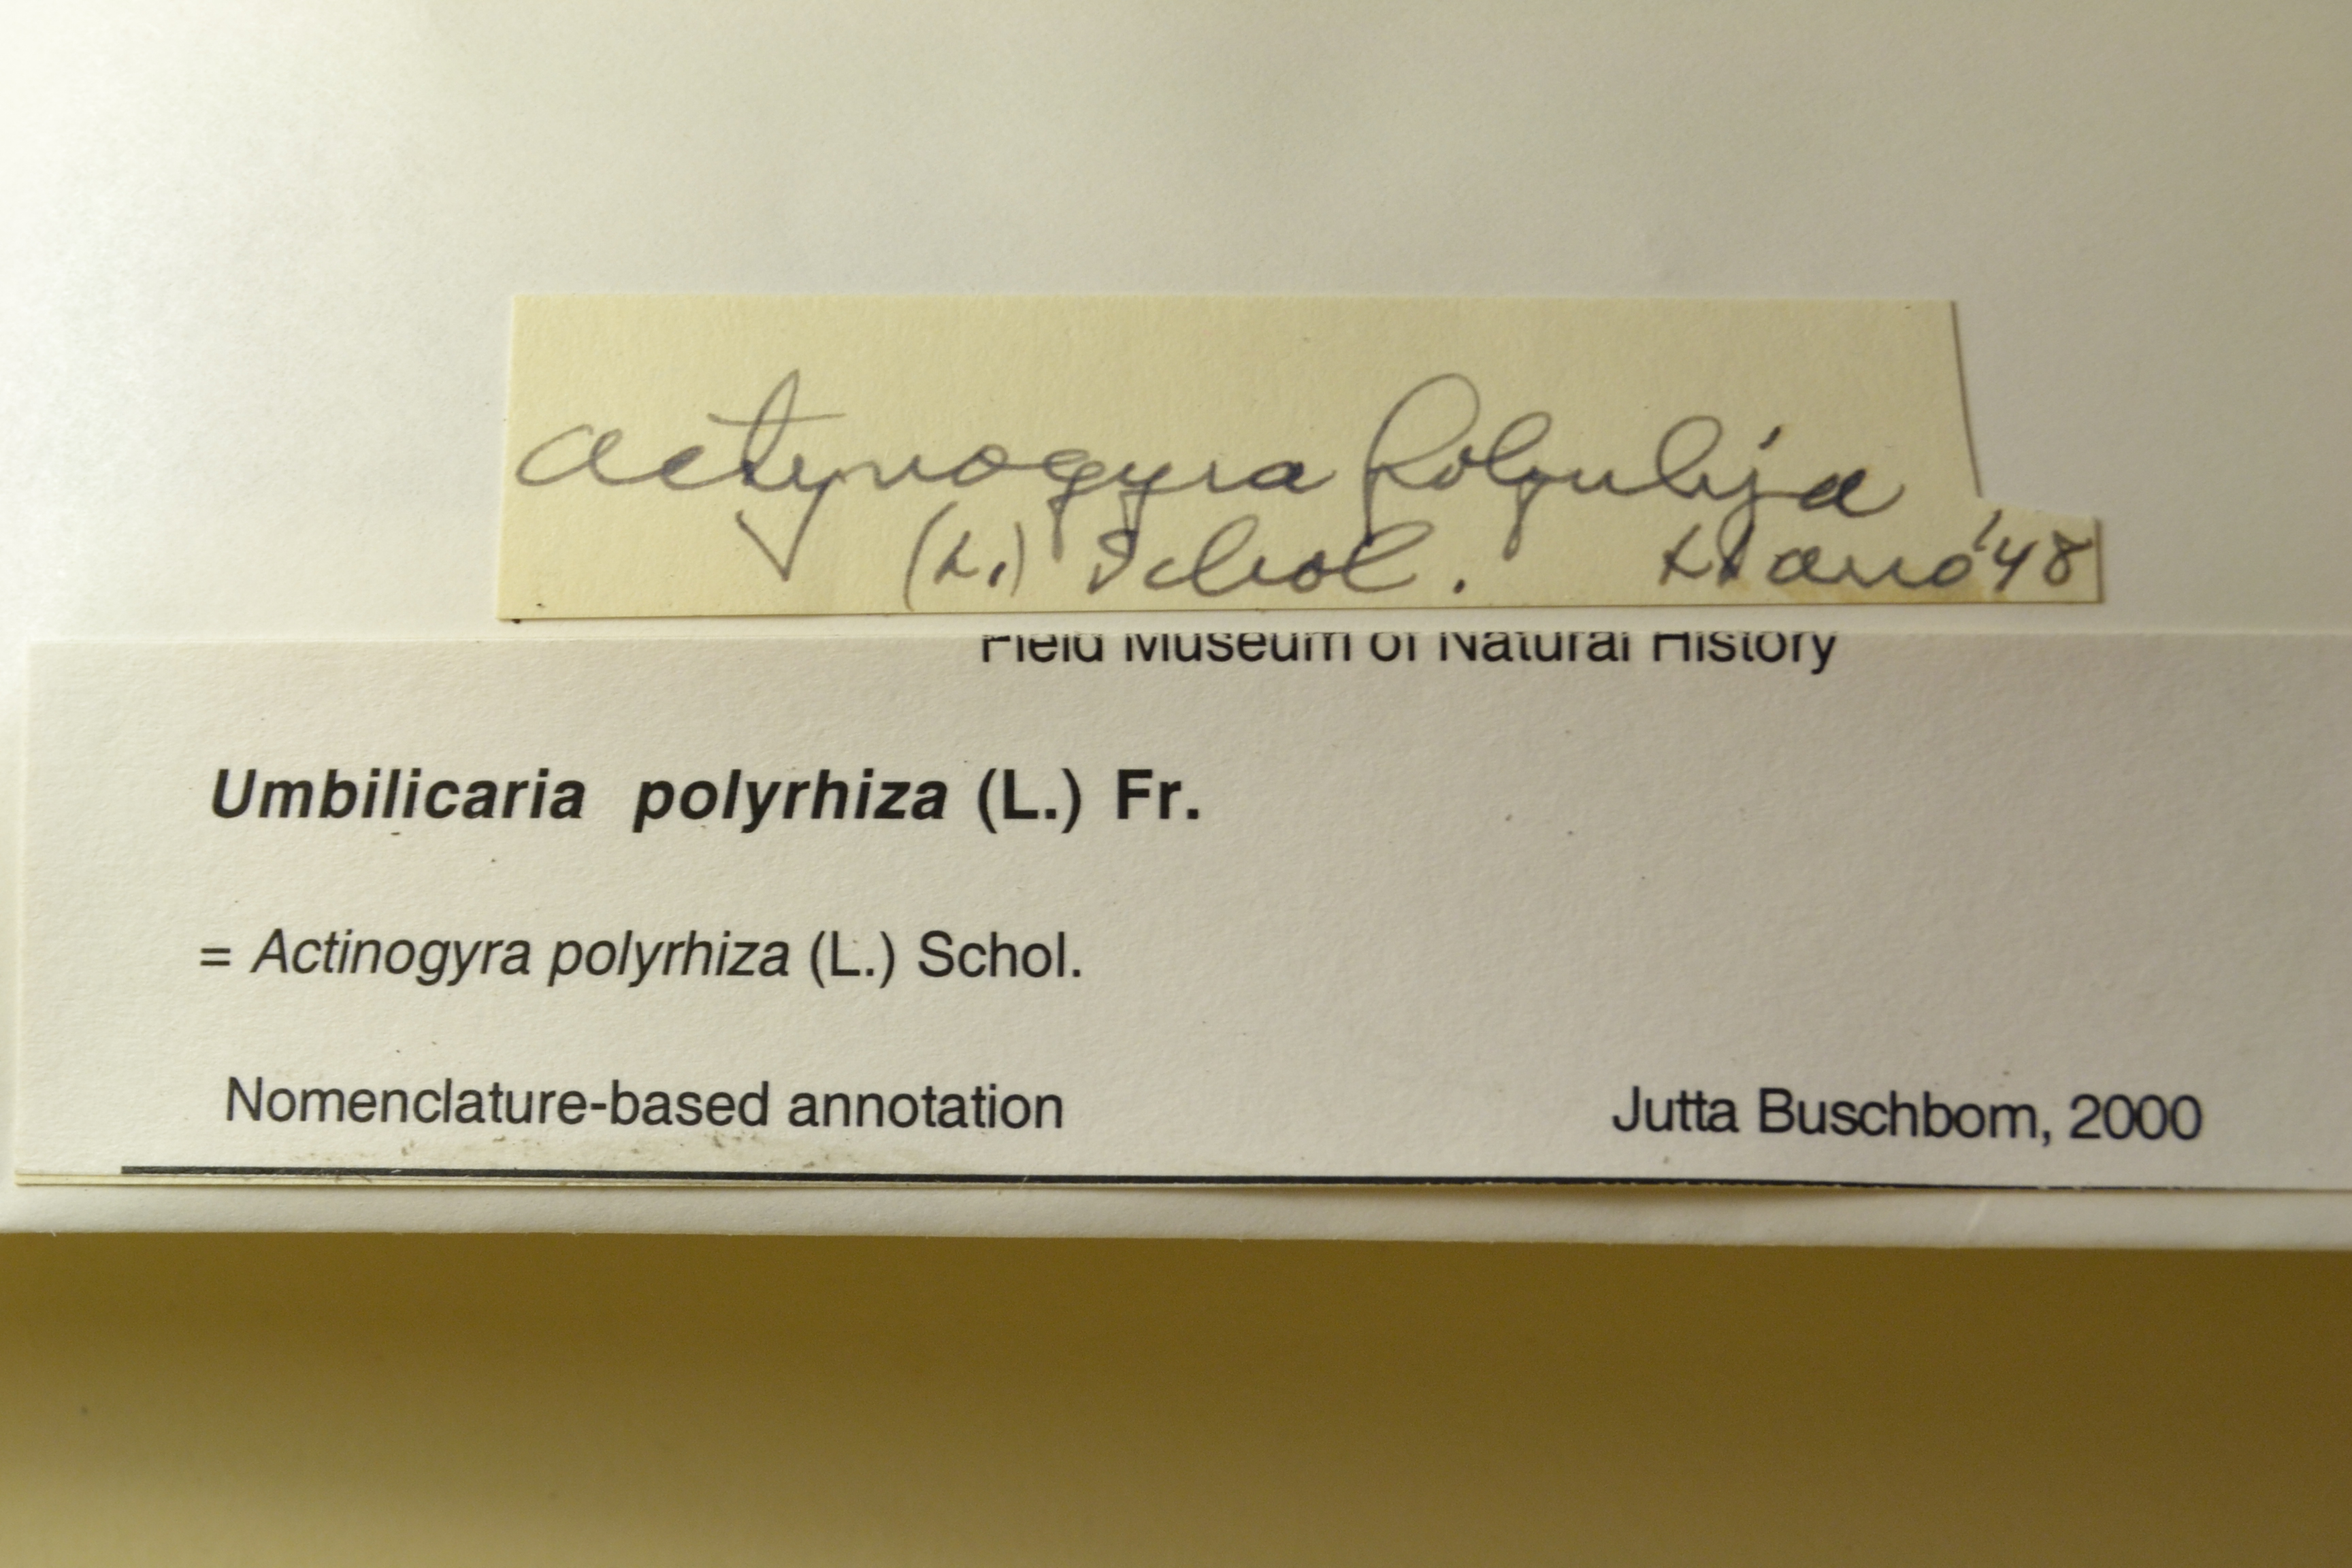 Actynogyra Polyrhiza
(L.) Schol. Llano '48
Field Museum of Natural History
Umbilicaria polyrhiza (L.) Fr.
= Actinogyra polyrhiza (L.) Schol.
Nomenclature-based annotation Jutta Buschbom, 2000